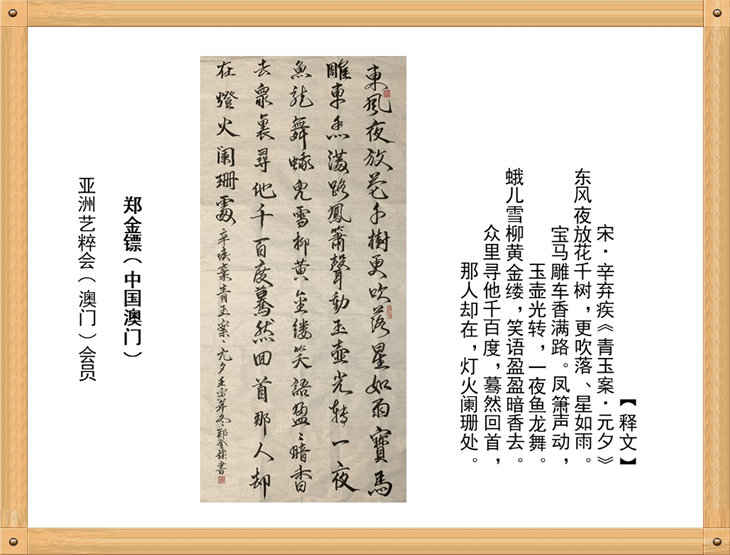 【释文】
宋·辛弃疾《青玉案·元夕》
东风夜放花千树，更吹落、星如雨。
宝马雕车香满路。凤箫声动，
玉壶光转，一夜鱼龙舞。
蛾儿雪柳黄金缕，笑语盈盈暗香去。
众里寻他千百度，蓦然回首，
那人却在，灯火阑珊处。
東風夜放花千樹更吹落星如雨寶馬
雕車香滿路鳳簫聲動玉壺光轉一夜
魚龍舞蛾兒雪柳黄金縷笑語盈々暗香
去衆裏尋他千百度驀然回首那人却
在燈火阑珊處 辛疾棄青玉案、元夕壬寅年冬鄭金鏢書
郑金镖（中国澳门）
亚洲艺粹会（澳门）会员